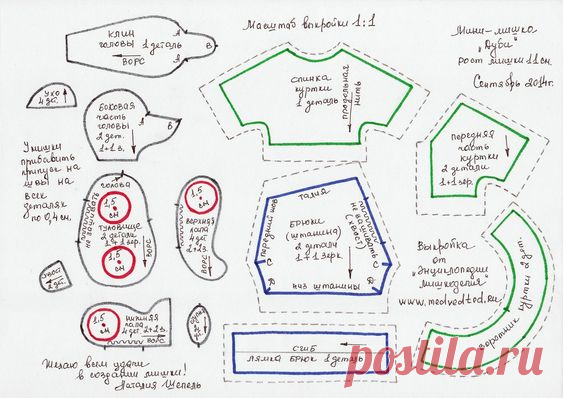 Масштаб выкройки 1:1
Мини-мишка
„Дуби"
рост мишки 11 см.
Сентябрь 2014г.
клин
головы 1 деталь
ворс
А
А
В
ухо
4 дет.
боковая
часть
головы
2 дет.
1+1 з.
А
В
У мишки
прибавить
припуск на
швы на
всех
деталях
по 0,4 см.
спинка
куртки
1 деталь
продольная
нить
передняя
часть
куртки
2 детали
1+1 зер.
голова
1,5
см
не зашивать
туловище
2 детали
1+1 зер.
ворс
1,5
см
верхняя
лапа
4 дет.
2+2 з.
ворс
талия
передний шов
брюки
(штанина)
2 детали
1+1 зерк.
не зашивать
(хвост)
С
С
Д
Д
низ штанины
Выкройка
от
„Энциклопедии
мишкоделия"
www.medvedted.ru.
подборт
куртки 2 дет.
2 дет.
1,5
см
нижняя
лапа
4 дет. 2+2 з.
ворс
сгиб
лямка брюк 1 деталь
Желаю всем удачи
в создании мишки!
Наталия Шепель
postila.ru